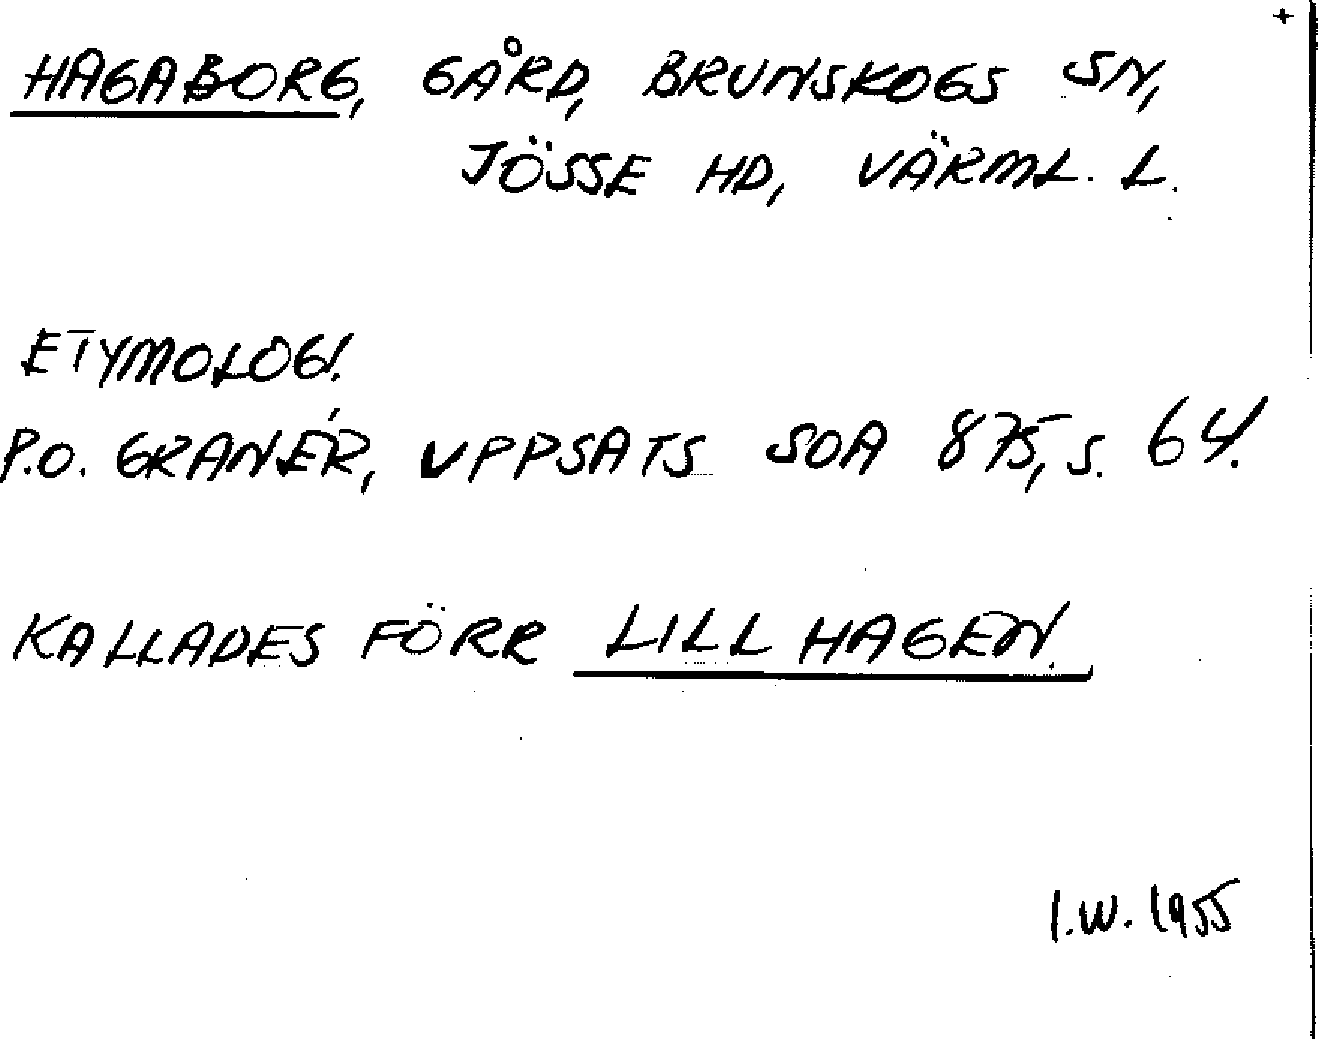 +
HAGABORG, GÅRD, BRUNSKOGS SN,
JÖSSE HD, VÄRML. L.
ETYMOLOGI.
P.O. GRANÉR, UPPSATS SOA 875, S. 64.
KALLADES FÖRR LILL HAGEN.
I.W. 1955